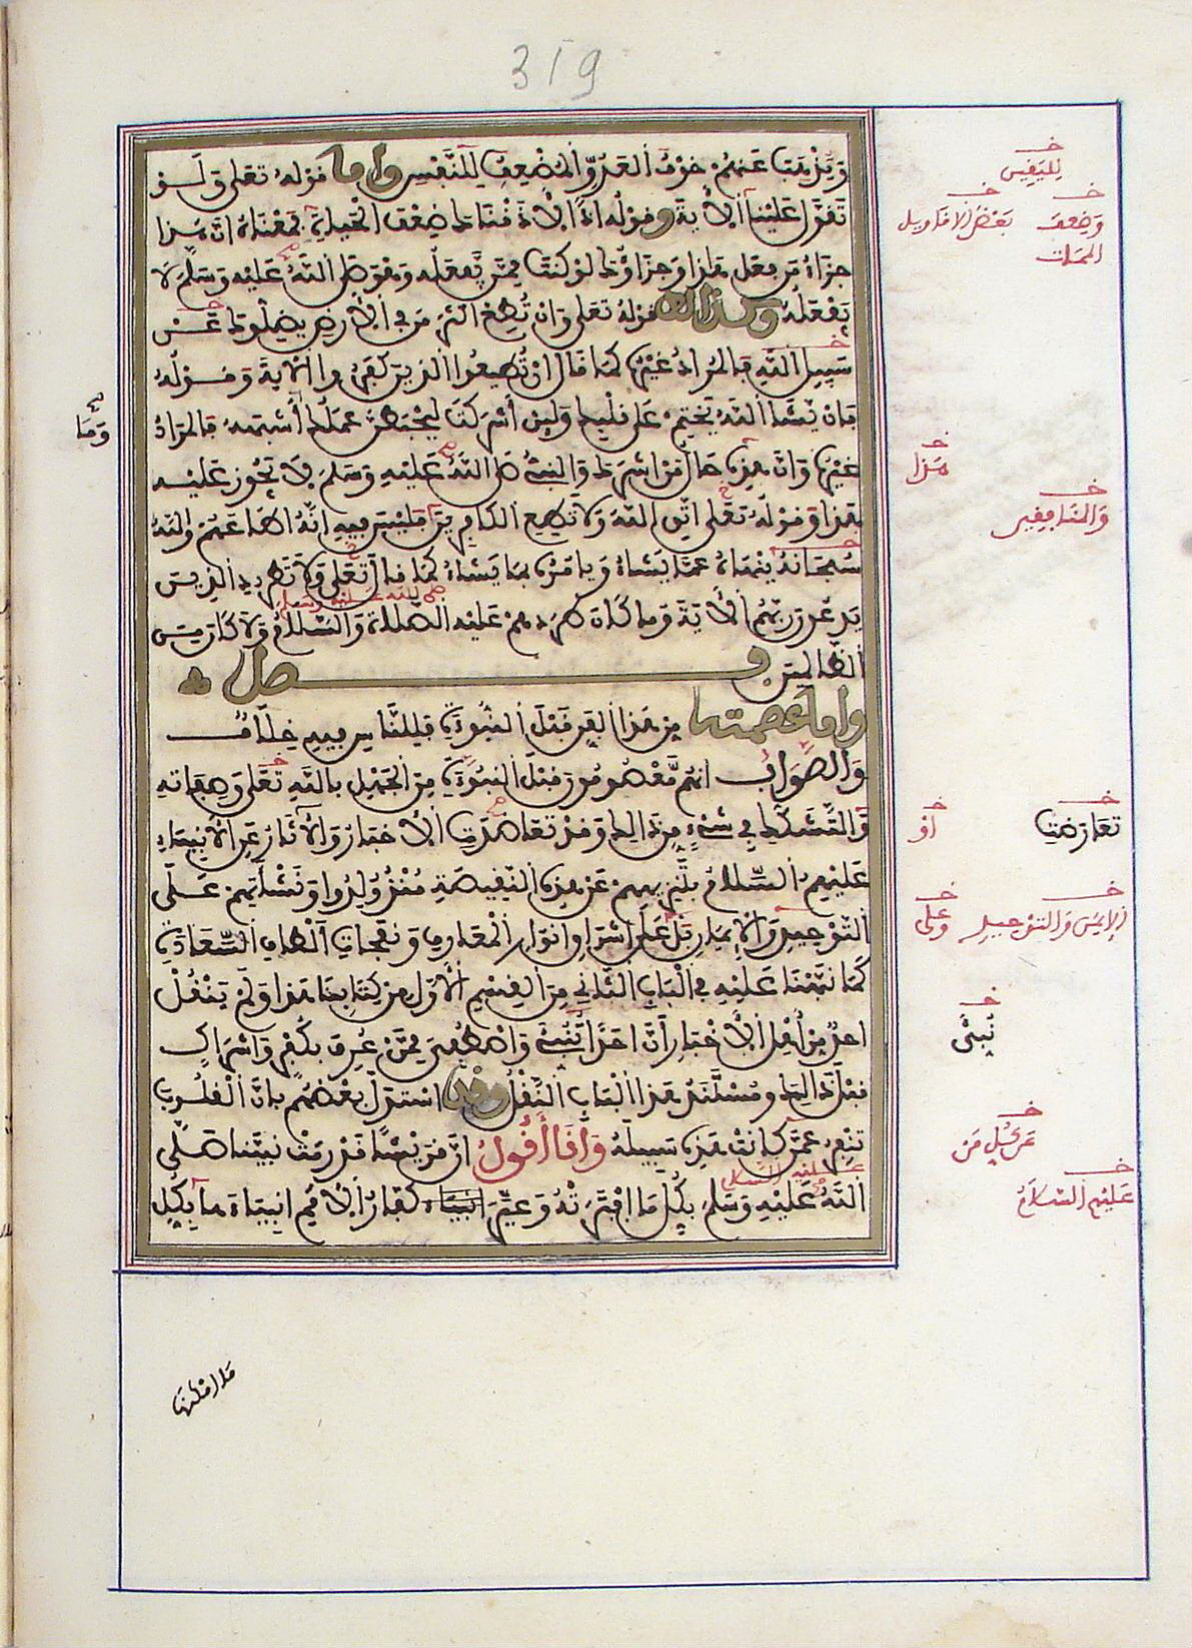 319
وَيُذْهِبَ عَنْهُمْ خَوْفَ الْعَدُوِّ الْمُضْعِفِ لِلنَّفْسِ وأما قوله تعلى وَلَوْ
تَقَوَّلَ عَلَيْنَا الْآيَةَ وقوله إِذًا لَأَذَقْنَاكَ ضِعْفَ الْحَيَاةِ فَمَعْنَاهُ أَنَّ هَذَا
جَزَاءُ مَن فعل هذا وَجَزَاؤُكَ لَوْ كُنْتَ مِمَّنْ يَفْعَلُهُ وَهُوَ صَلَّى اللَّهُ عَلَيْهِ وَسَلَّمَ لَا
يَفْعَلُهُ وكذلك قوله تعلى وَإِنْ تُطِعْ أَكْثَرَ مَن فِي الْأَرْضِ يُضِلُّوكَ عَنْ
سَبِيلِ اللَّهِ فَالْمُرَادُ غَيْرُهُ كَمَا قَالَ إِنْ تُطِيعُوا الَّذِينَ كَفَرُوا الْآيَةَ وَقَوْلُهُ
فَإِنْ يَشَإِ اللَّهُ يَخْتِمْ عَلَى قَلْبِكَ وَلَئِنْ أَشْرَكْتَ لَيَحْبَطَنَّ عَمَلُكَ وما أَشْبَهَهُ فالمراد
غَيْرُهُ وَأَنَّ هذه حَالُ مَنْ أَشْرَكَ وَالنَّبِيُّ صَلَّى اللَّهُ عَلَيْهِ وَسَلَّمَ لَا يَجُوزُ عَلَيْهِ
هذا وَقَوْلُهُ تَعَلَى اتَّقِ اللَّهَ وَلَا تُطِعِ الْكَافِرِينَ فَلَيْسَ فِيهِ أَنَّهُ أَطَاعَهُمْ وَاللَّهُ
سُبْحَانَهُ يَنْهَاهُ عَمَّا يَشَاءُ وَيَأْمُرُهُ بِمَا يَشَاءُ كَمَا قَالَ تَعَلَى وَلَا تَطْرُدِ الَّذِينَ
يَدْعُونَ رَبَّهُمُ الْآيَةَ وَمَا كَانَ طَرَدَهُمْ عَلَيْهِ الصَّلَاةُ وَالسَّلَامُ وَلَا كَانَ مِنَ
صلى الله عليه وسلم
الظَّالِمِينَ فصل
وأما عصمتهم مِنْ هَذَا الْفَنِّ قَبْلَ النُّبُوءَةِ فَلِلنَّاسِ فِيهِ خِلَافٌ
وَالصَّوَابُ أَنَّهُمْ مَعْصُومُونَ قَبْلَ النُّبُوءَةِ مِنَ الْجَهْلِ بِاللَّهِ تَعَلَى وَصِفَاتِهِ
وَالتَّشَكُّكِ فِي شَيْءٍ مِن ذَلِكَ وَقَدْ تَعَاضَدَتِ الْأَخْبَارُ وَالْآثَارُ عَنِ الْأَنْبِيَاءِ
عَلَيْهِمُ السَّلَامُ بِتَنْزِيهِهِمْ عَنْ هذه النَّقِيصَةِ مُنْذُ وُلِدُوا وَنَشْأَتِهِمْ عَلَى
التَّوْحِيدِ وَالْإِيمَانِ بَلْ عَلَى إِشْرَاقِ أَنْوَارِ الْمَعَارِفِ وَنَفَحَاتِ أَلْطَافِ السَّعَادَةِ
كَمَا نَبَّهْنَا عَلَيْهِ فِي الْبَابِ الثَّانِي مِنَ الْقِسْمِ الْأَوَّلِ مِنْ كِتَابِنَا هَذَا وَلَمْ يَنْقُلْ
أَحَدٌ مِنْ أَهْلِ الْأَخْبَارِ أَنَّ أَحَدًا نُبِّئَ وَاصْطُفِيَ مِمَّنْ عُرِفَ بِكُفْرٍ وَإِشْرَاكٍ
قبل ذَلِكَ وَمُسْتَنَدُ هَذَا الْبَابِ النَّقْلُ وقد اسْتَدَلَّ بَعْضُهُمْ بِأَنَّ الْقُلُوبَ
تَنْفِرُ عَمَّنْ كَانَتْ هذه سَبِيلَهُ وَأَنَا أَقُولُ إِنَّ قُرَيْشًا قَدْ رَمَتْ نَبِيَّنَا صَلَّى
عليه السلام
اللَّهُ عَلَيْهِ وَسَلَّمَ بِكُلِّ مَا افْتَرَتْهُ وَعَيَّرَ كُفَّارُ الْأُمَمِ أَنْبِيَاءَهَا بِكُلِّ
لليقين
وضعف
بعض الأقاويل
الممات
وَمَا
هَذَا
وَالمنافقين
تعارضت
أو
الإيمان والتوحيد
وعلى
نُبِّئَ
عن كل من
عليهم السلام
ما أمكنها